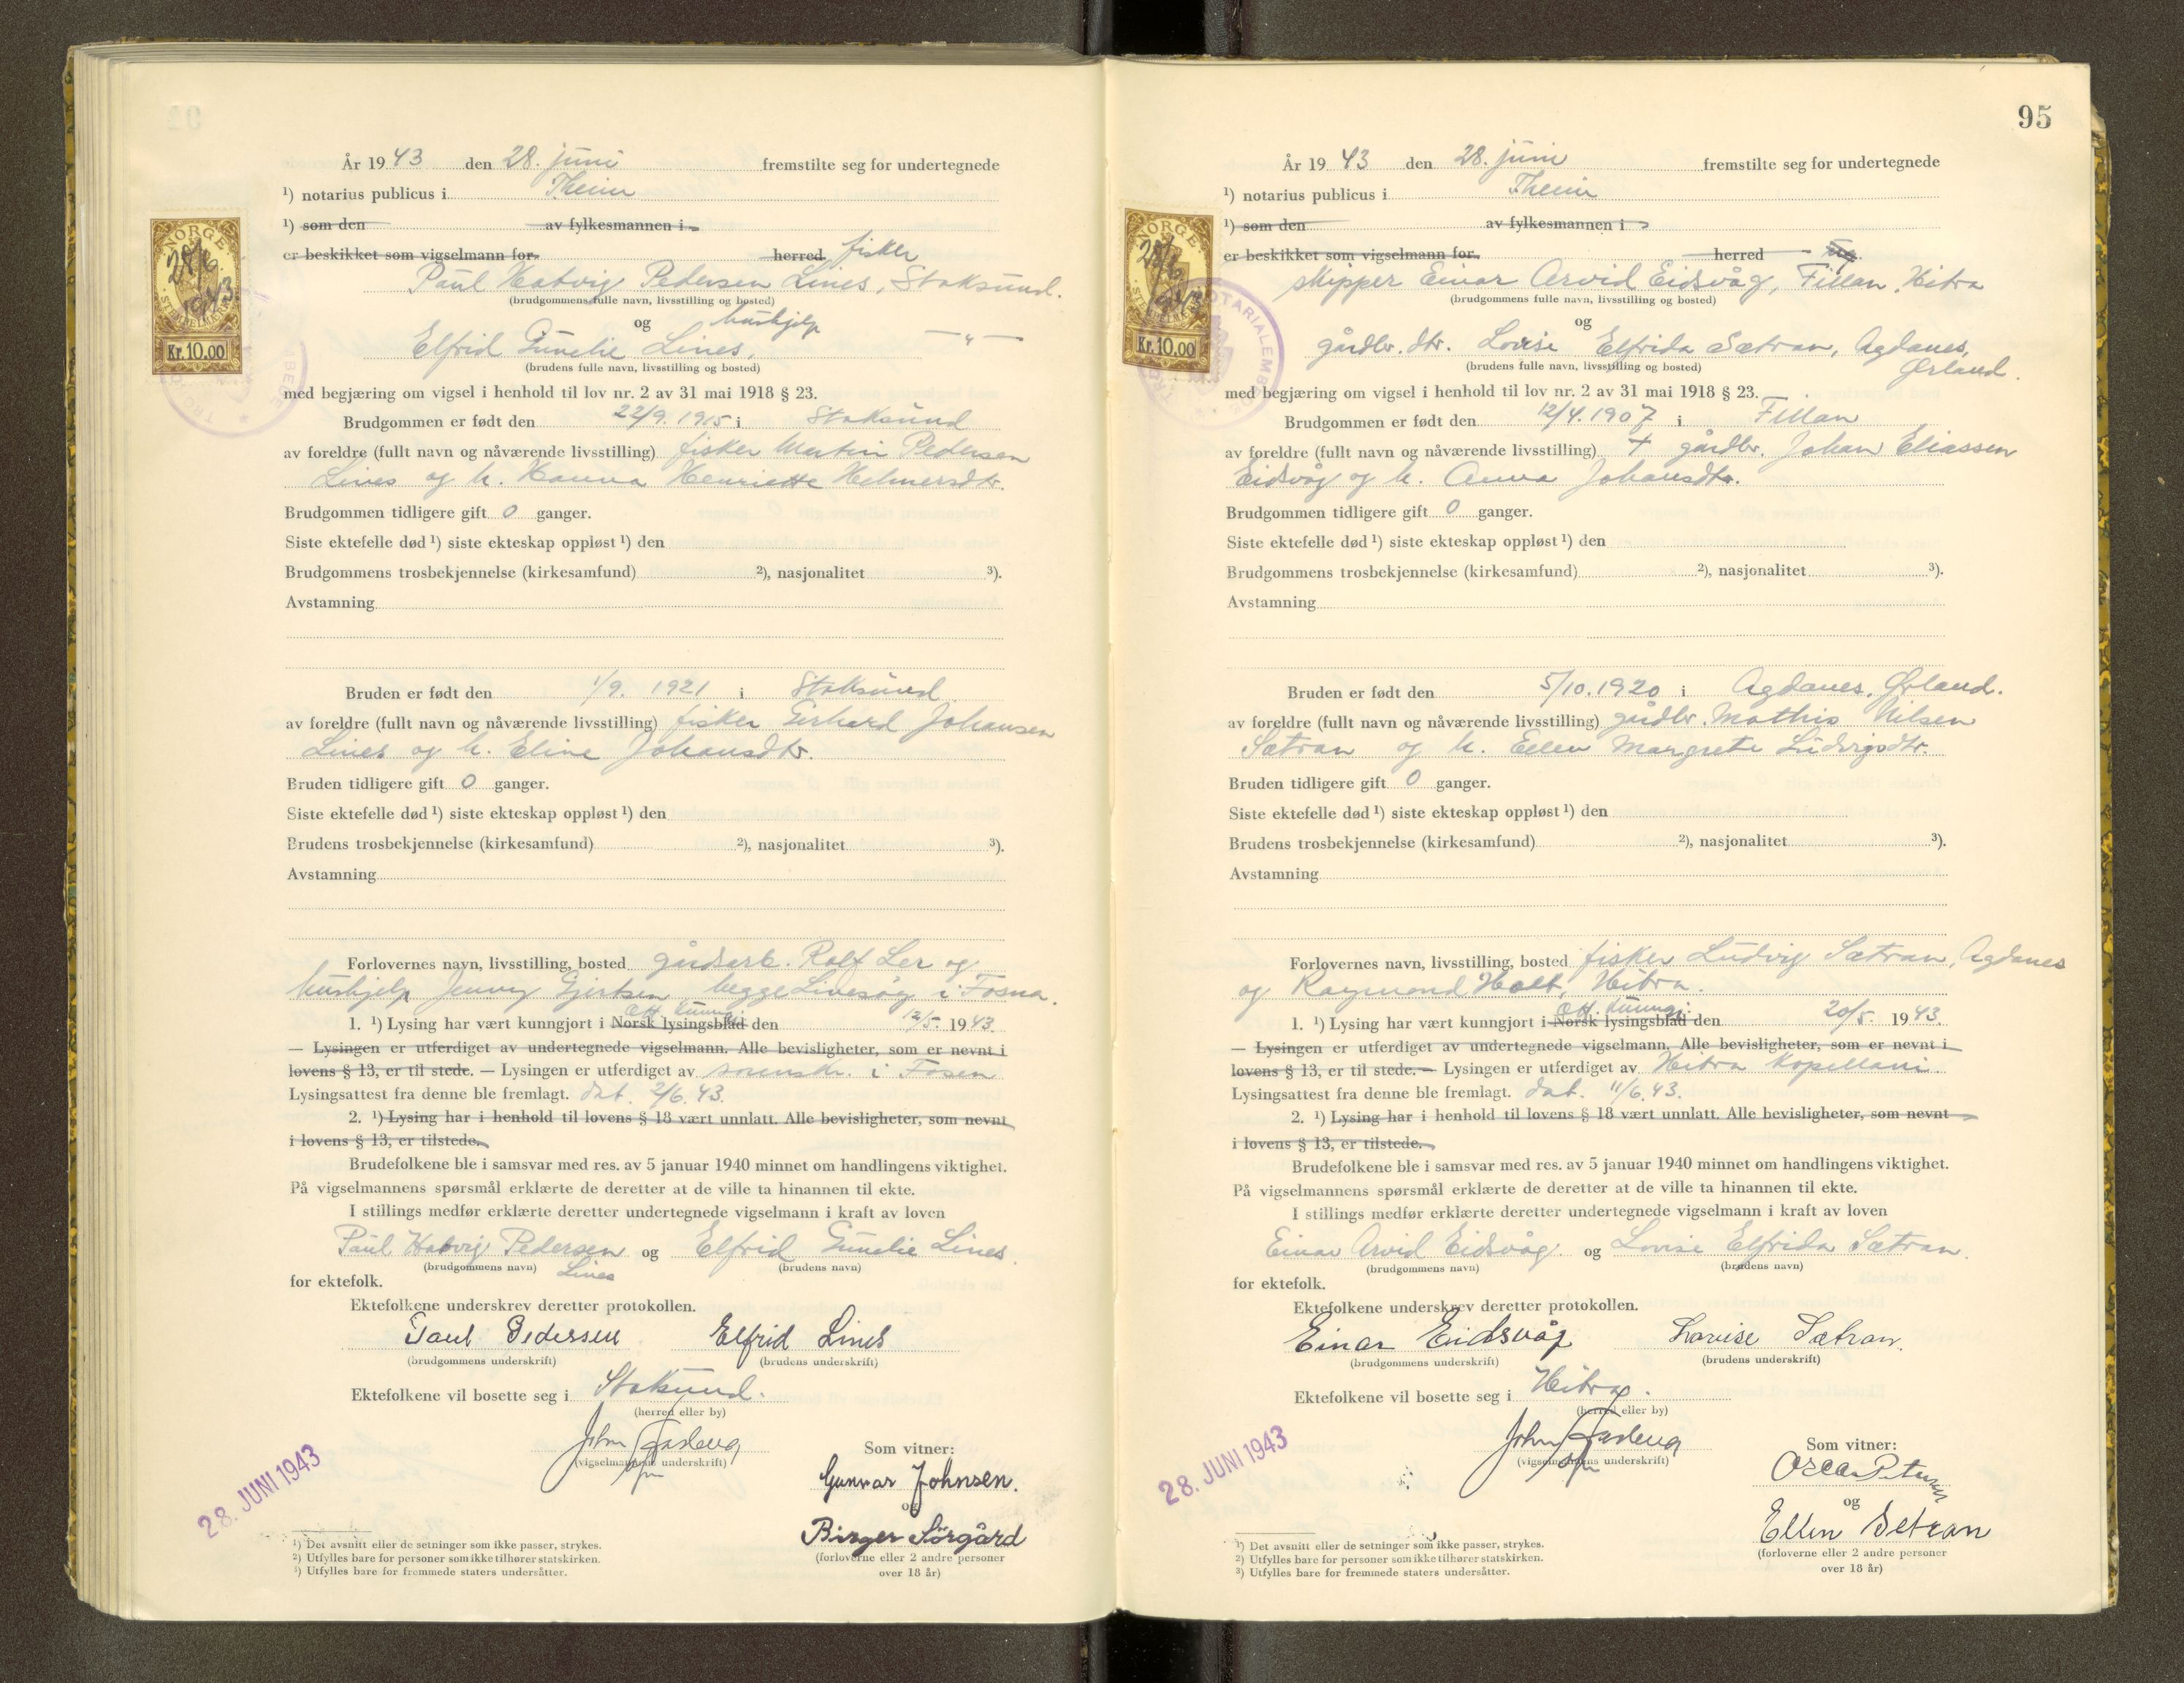 År 1943 den 28. juni fremstilte seg for undertegnede
¹) notarius publicus i Theim
¹) som den av fylkesmannen i
er beskikket som vigselmann for herred fisker
Paul Hatvig Pedersen Lines, Stoksund.
(brudgommens fulle navn, livsstilling og bosted)
og hushjelp
Elfrid Gunelie Lines, — " —
(brudens fulle navn, livsstilling og bosted)
med begjæring om vigsel i henhold til lov nr. 2 av 31 mai 1918 § 23.
Brudgommen er født den 22/9. 1915 i Stoksund
av foreldre (fullt navn og nåværende livsstilling) fisker Martin Pedersen
Lines og h. Hanna Henriette Helmersdtr.
Brudgommen tidligere gift 0 ganger.
Siste ektefelle død ¹) siste ekteskap oppløst ¹) den
Brudgommens trosbekjennelse (kirkesamfund) ²), nasjonalitet ³).
Avstamning
Bruden er født den 1/9. 1921 i Stoksund
av foreldre (fullt navn og nåværende livsstilling) fisker Gerhard Johansen
Lines og h. Eline Johansdtr.
Bruden tidligere gift 0 ganger.
Siste ektefelle død ¹) siste ekteskap oppløst ¹) den
Brudens trosbekjennelse (kirkesamfund) ²), nasjonalitet ³).
Avstamning
Forlovernes navn, livsstilling, bosted gårdsarb. Rolf Ler og
hushjelp Jenny Gjertsen begge Linesøy i Fosna.
Off. kunngj.
1. ¹) Lysing har vært kunngjort i Norsk lysingsblad den 12/5. 1943.
— Lysingen er utferdiget av undertegnede vigselmann. Alle bevisligheter, som er nevnt i
lovens § 13, er til stede. — Lysingen er utferdiget av sorenskr. i Fosen
Lysingsattest fra denne ble fremlagt. dat. 2/6. 43.
2. ¹) Lysing har i henhold til lovens § 18 vært unnlatt. Alle bevisligheter, som nevnt
i lovens § 13, er tilstede.
Brudefolkene ble i samsvar med res. av 5 januar 1940 minnet om handlingens viktighet.
På vigselmannens spørsmål erklærte de deretter at de ville ta hinannen til ekte.
I stillings medfør erklærte deretter undertegnede vigselmann i kraft av loven
Paul Hatvig Pedersen og Elfrid Gunelie Lines
(brudgommens navn) Lines (brudens navn)
for ektefolk.
Ektefolkene underskrev deretter protokollen.
Paul Pedersen Elfrid Lines
(brudgommens underskrift) (brudens underskrift)
Ektefolkene vil bosette seg i Stoksund.
(herred eller by)
John
(vigselmannens underskrift)
Som vitner:
Gunnar Johnsen.
og
Birger Sørgård
(forloverne eller 2 andre personer
over 18 år)
28. JUNI 1943
¹) Det avsnitt eller de setninger som ikke passer, strykes.
²) Utfylles bare for personer som ikke tilhører statskirken.
³) Utfylles bare for fremmede staters undersåtter.
NORGE
28/6
1943
STEMPELMERKE
Kr. 10.00
95
År 1943 den 28. juni fremstilte seg for undertegnede
¹) notarius publicus i Theim
¹) som den av fylkesmannen i
er beskikket som vigselmann for herred
skipper Einar Arvid Eidsvåg, Fillan, Hitra
(brudgommens fulle navn, livsstilling og bosted)
og
gårdbr. dtr. Lovise Elfrida Sætran, Agdanes,
Ørland.
(brudens fulle navn, livsstilling og bosted)
med begjæring om vigsel i henhold til lov nr. 2 av 31 mai 1918 § 23.
Brudgommen er født den 12/4. 1907 i Fillan
av foreldre (fullt navn og nåværende livsstilling) + gårdbr. Johan Eliassen
Eidsvåg og h. Anna Johansdtr.
Brudgommen tidligere gift 0 ganger.
Siste ektefelle død ¹) siste ekteskap oppløst ¹) den
Brudgommens trosbekjennelse (kirkesamfund) ²), nasjonalitet ³).
Avstamning
Bruden er født den 5/10. 1920 i Agdanes, Ørland.
av foreldre (fullt navn og nåværende livsstilling) gårdbr. Mathis Nilsen
Sætran og h. Ellen Margrete Ludvigsdtr.
Bruden tidligere gift 0 ganger.
Siste ektefelle død ¹) siste ekteskap oppløst ¹) den
Brudens trosbekjennelse (kirkesamfund) ²), nasjonalitet ³).
Avstamning
Forlovernes navn, livsstilling, bosted fisker Ludvig Sætran, Agdanes
og Raymond Holt, Hitra.
Off. kunngj.
1. ¹) Lysing har vært kunngjort i Norsk lysingsblad den 20/5. 1943.
— Lysingen er utferdiget av undertegnede vigselmann. Alle bevisligheter, som er nevnt i
lovens § 13, er til stede. — Lysingen er utferdiget av Hitra kapellani.
Lysingsattest fra denne ble fremlagt. dat. 11/6. 43.
2. ¹) Lysing har i henhold til lovens § 18 vært unnlatt. Alle bevisligheter, som nevnt
i lovens § 13, er tilstede.
Brudefolkene ble i samsvar med res. av 5 januar 1940 minnet om handlingens viktighet.
På vigselmannens spørsmål erklærte de deretter at de ville ta hinannen til ekte.
I stillings medfør erklærte deretter undertegnede vigselmann i kraft av loven
Einar Arvid Eidsvåg og Lovise Elfrida Sætran.
(brudgommens navn) (brudens navn)
for ektefolk.
Ektefolkene underskrev deretter protokollen.
Einar Eidsvåg Lovise Sætran.
(brudgommens underskrift) (brudens underskrift)
Ektefolkene vil bosette seg i Hitra.
(herred eller by)
John
(vigselmannens underskrift)
Som vitner:
Oscar
og
Ellen Setran
(forloverne eller 2 andre personer
over 18 år)
28. JUNI 1943
¹) Det avsnitt eller de setninger som ikke passer, strykes.
²) Utfylles bare for personer som ikke tilhører statskirken.
³) Utfylles bare for fremmede staters undersåtter.
NORGE
28/6
1943
Kr. 10.00